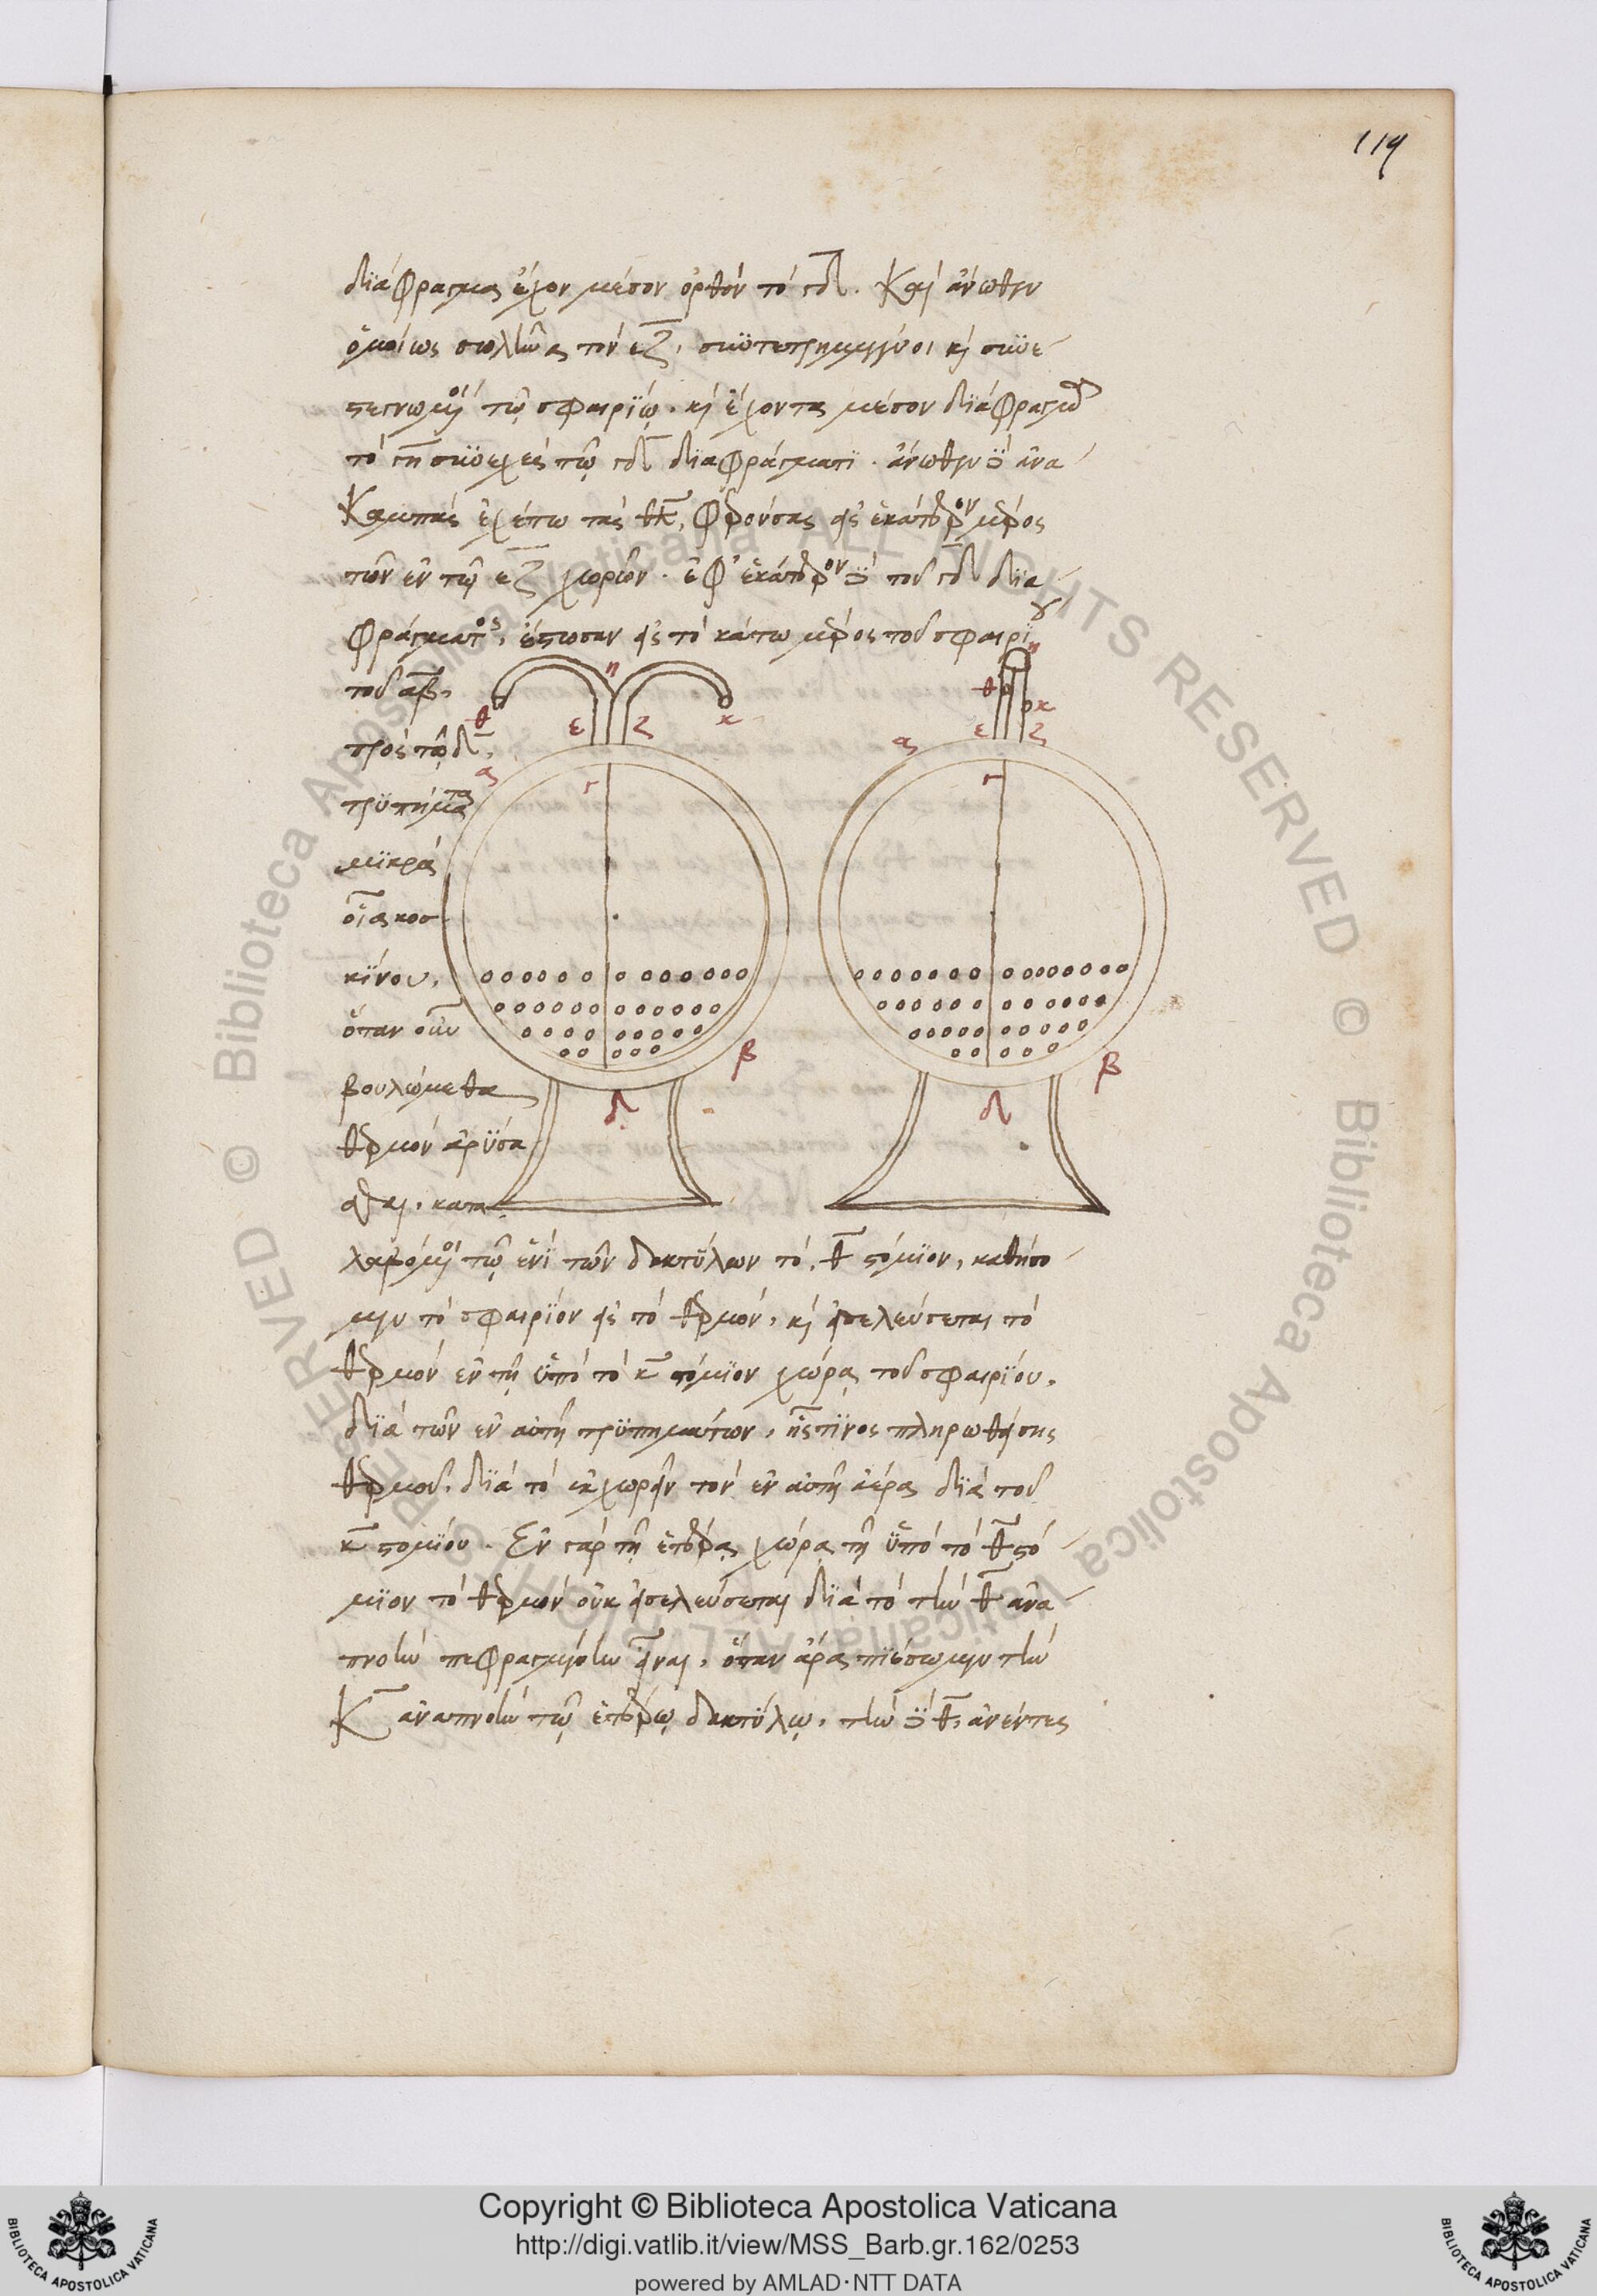 119
διάφραγμα ἔχον μέσον ὀρθόν τό γδ. Καὶ ἄνωθεν
ὁμοίως σωλῆνα τὸν εζ, συντετρημένοι καὶ συνε-
στεγνωμένοι τῷ σφαιρίῳ. καὶ ἔχοντα μέσον διάφραγμα
τὸ γη συνεχές τῷ γδ διαφράγματι. ἄνωθεν δὲ ἀνα-
καμπάς ἐχέτω τάς θκ, φερούσας εἰς ἑκάτερον μέρος
τῶν ἐν τῷ εζ χωρίων. ἐφ' ἑκάτερον δὲ τοῦ γδ δια-
φράγματος, ἔστωσαν εἰς τὸ κάτω μέρος τοῦ σφαιρίου
τοῦ αβ,
πρὸς τῷ δ,
τρυπήματα
μικρά
οἷα κοσ-
κίνου.
ὅταν οὖν
βουλώμεθα
θερμόν ἀρύσα-
σθαι, κατα-
θ η ε ζ κ
α γ β δ
η θ κ ε ζ
α γ β δ
λαβόμενοι τῷ ἑνί τῶν δακτύλων τό θ στόμιον, καθήσο-
μεν τό σφαιρίον εἰς τό θερμόν, καὶ εἰσελεύσεται τό
θερμόν ἐν τῇ ὑπό τό κ στόμιον χώρᾳ τοῦ σφαιρίου.
διά τῶν ἐν αὐτῇ τρυπημάτων, ἧς τινος πληρωθείσης
θερμοῦ, διά τό ἐκχωρεῖν τόν ἐν αὐτῇ ἀέρα διά τοῦ
κ στομίου. Ἐν γάρ τῇ ἑτέρᾳ χώρᾳ τῇ ὑπό τό θ στό-
μιον τό θερμόν οὐκ εἰσελεύσεται διά τό τήν θ ἀνα-
πνοήν πεφραγμένην εἶναι. ὅταν ἄρα πιέσωμεν τήν
Κ ἀναπνοήν τῷ ἑτέρῳ δακτύλῳ, τήν δὲ θ, ἀνέντες
Copyright © Biblioteca Apostolica Vaticana
http://digi.vatlib.it/view/MSS_Barb.gr.162/0253
powered by AMLAD·NTT DATA
BIBLIOTECA APOSTOLICA VATICANA
BIBLIOTECA APOSTOLICA VATICANA
© Biblioteca Apostolica Vaticana ALL RIGHTS RESERVED
© Biblioteca Apostolica Vaticana ALL RIGHTS RESERVED